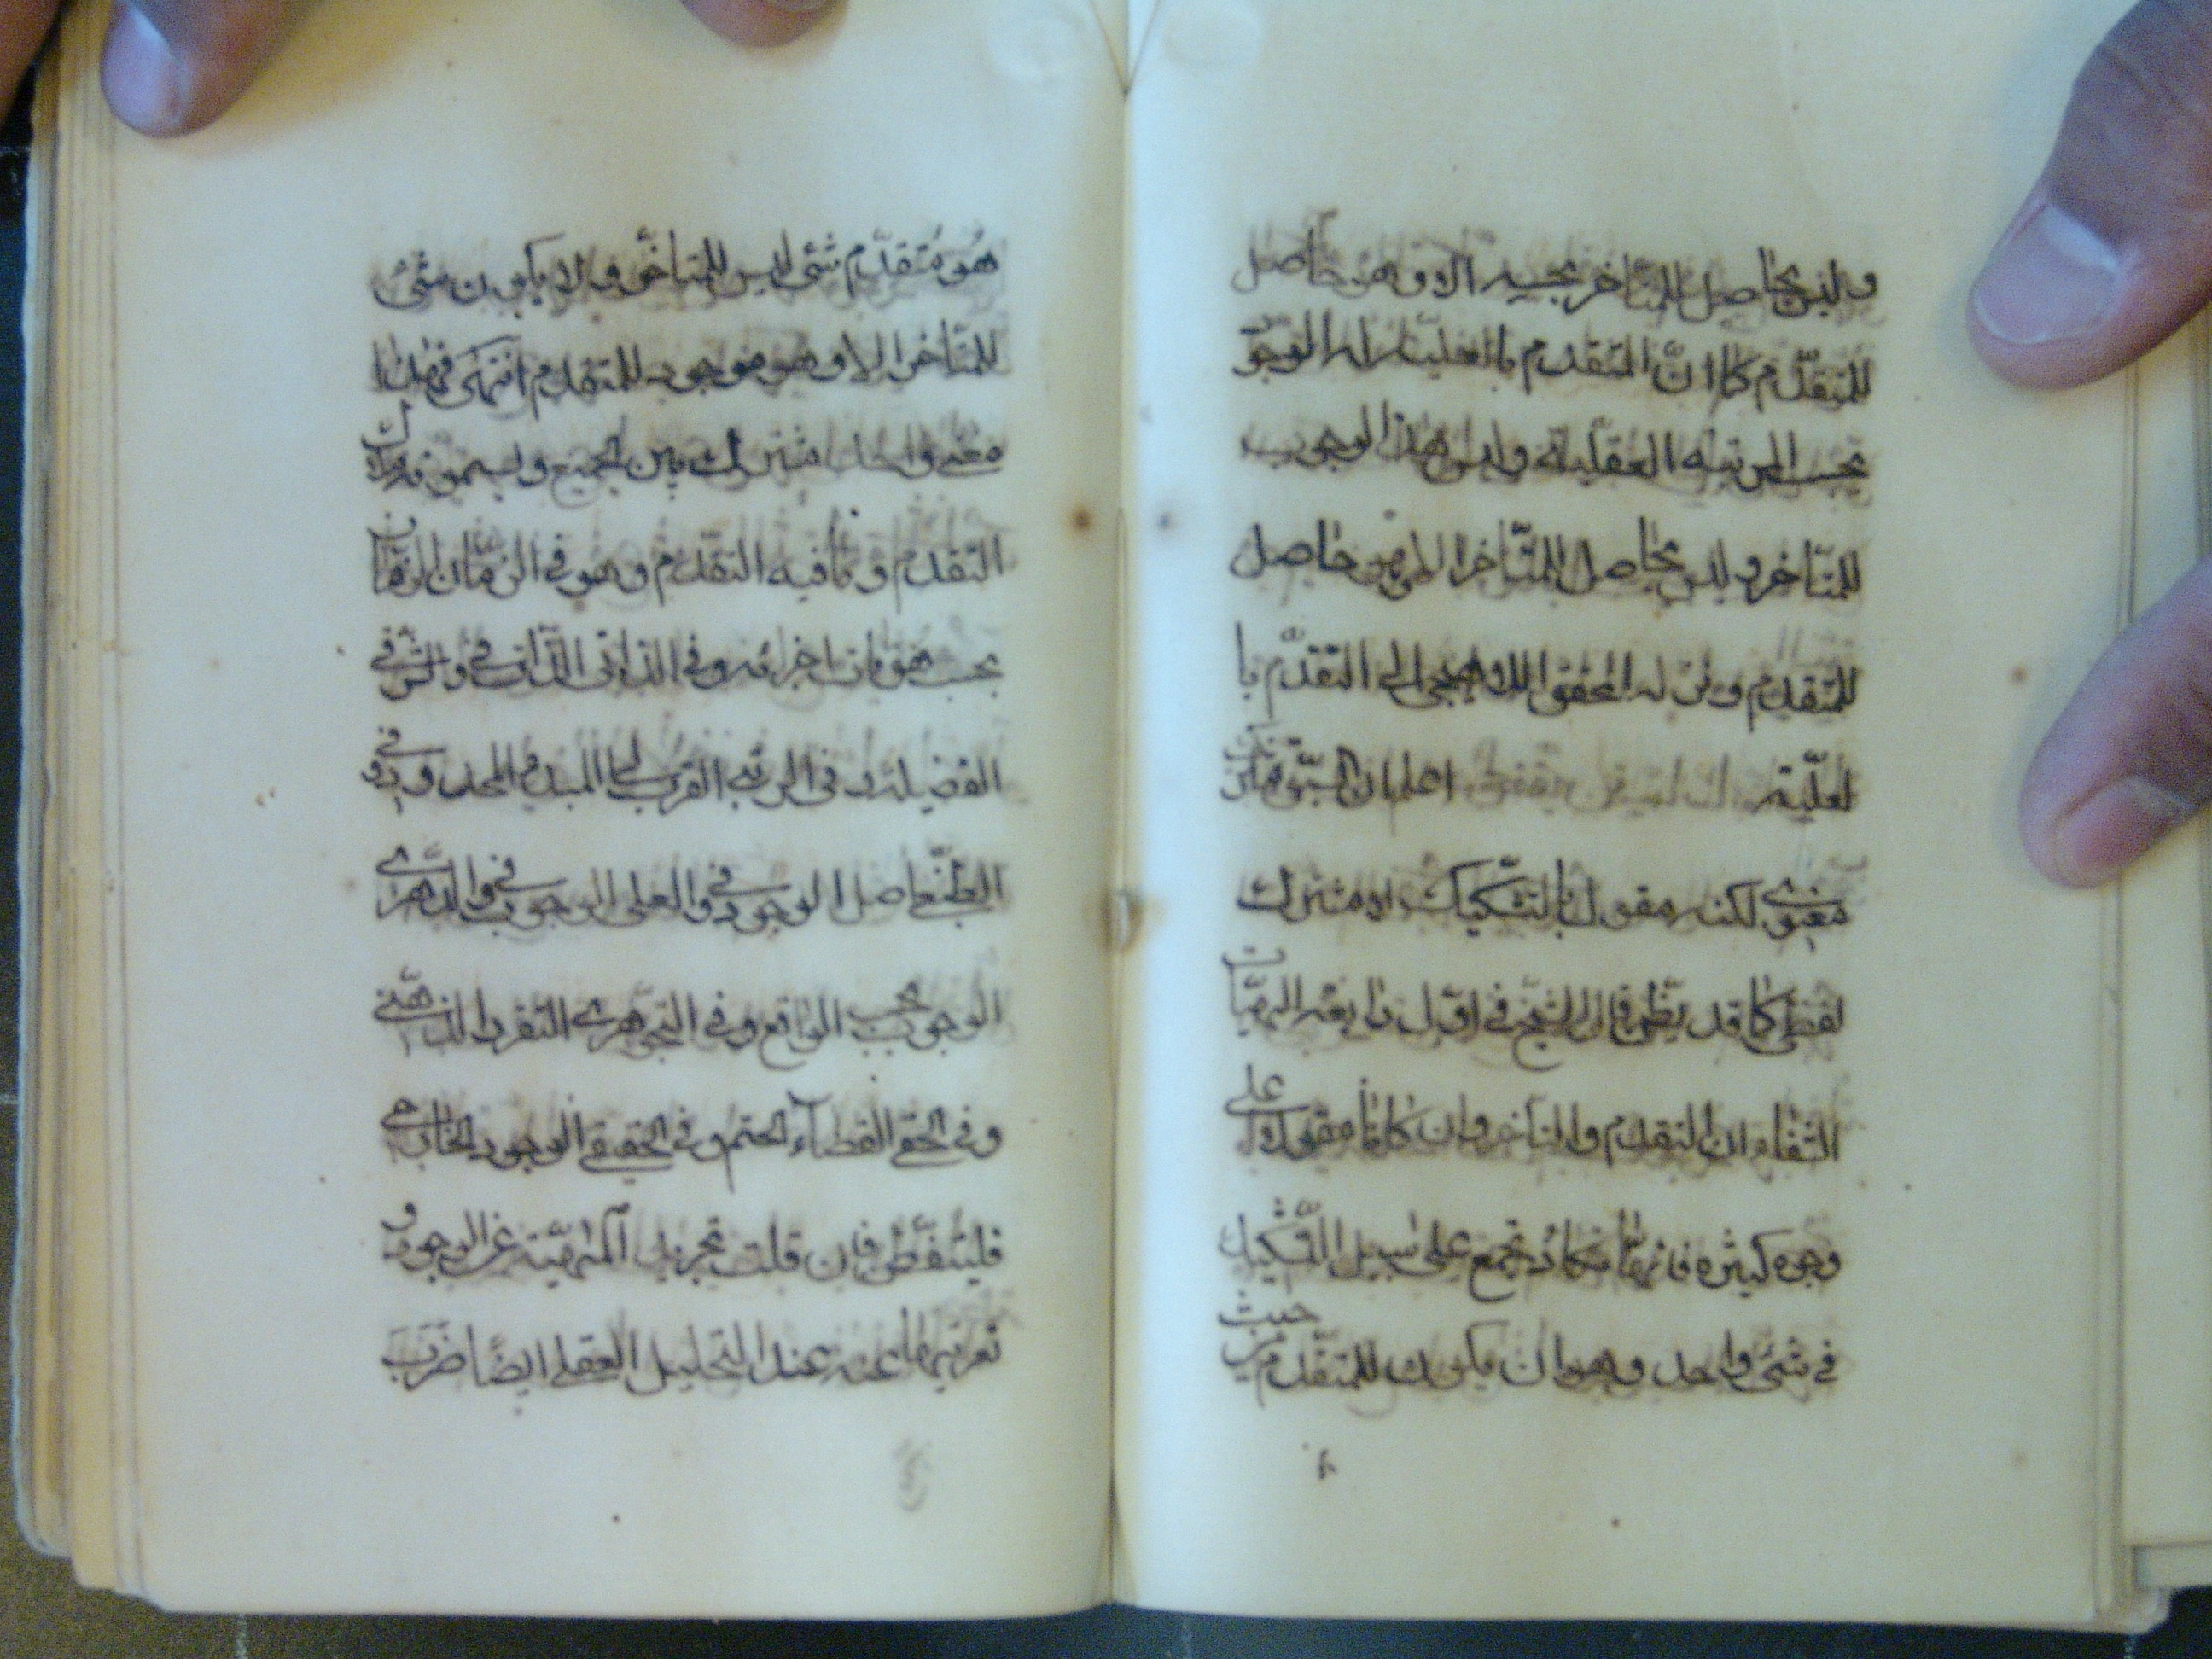 وليس بحاصل للمتأخر بحسبه الا وهو حاصل
للمتقدّم كما انّ المتقدم بالعليّة له الوجوب
بحسب المرتبه العقليّه وليس هذا الوجوب
للمتأخر وليس بحاصل للمتأخر الا وهو حاصل
للمتقدم المحقق الى التقدّم با
لعلّية اعلم ان السبق مشترك
معنوى لكنه مقول بالتشكيك اذ مشترك
لفظى كما قد يظن قال الشيخ فى اوّل رابعه الهيّات
الشفاء ان التقدم والتأخر وان كانا مقولا على
وجوه كثيره فانهما تكاد تجتمع على سبيل التّشكيك
فى شئ واحد وهو ان يكون للمتقدّم من حيث
هو متقدّم شئ ليس للمتأخّر ولا يكون شئ
للمتأخر الا وهو موجود للمتقدم انتهى فهذا
معنى واحد مشترك بين الجميع ويسمونه ملاك
التقدم وما فيه التقدم وهو فى الزمان الزمان
بحسب هويات اجزائه وفى الذاتى وفى الشرفى
الفضيله وفى الرتبه القرب الى المبدء المحدود وفى
الطبع اصل الوجود وفى العلى الوجوب وفى الدهرى
الوجود بحسب الواقع وفى التجوهرى التقرر الذهنى
وفى الحقى القضاء الحتم وفى الحقيقى الوجود الخارجى
فليتفطّن فان قلت تجريد المهيّة عن الوجود و
تعريتها عنه عند التحليل العقلى ايضا ضرب